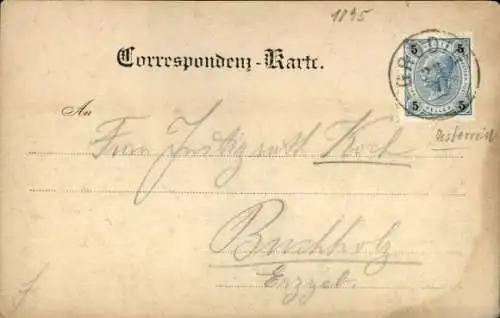 1895
Correspondenz-Karte.
5 5
5 HELLER 5
An
Frau Justizrath Koch
Österreich
Buchholz
Erzgeb.